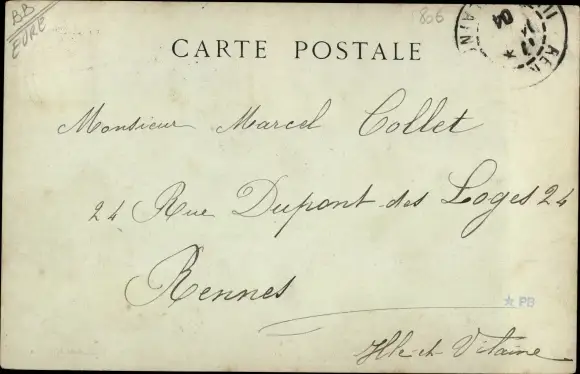 BB
EURE
1806
CARTE POSTALE
REN
04
Monsieur Marcel Collet
24 Rue Dupont des Loges 24
Rennes
PB
Ille-et-Vilaine